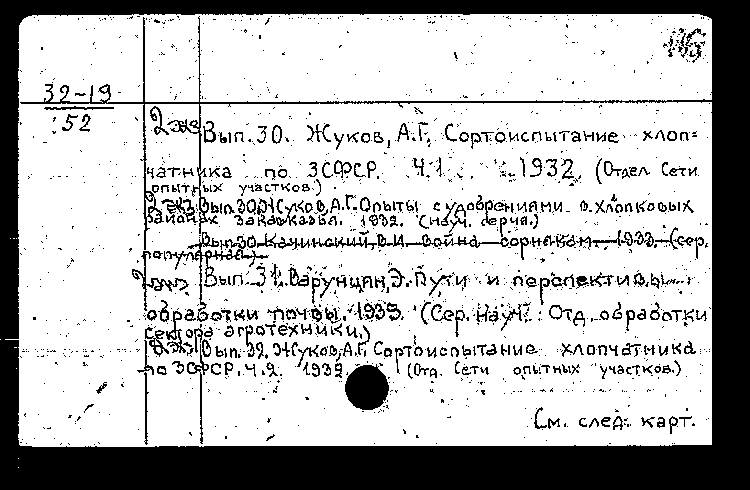 32-19
52
2 экз Вып. 30. Жуков, А.Г. Сортоиспытание хлоп=
чатника по ЗСФСР. Ч.1. 1932 (Отдел Сети
опытных участков.)
2 экз Вып. 30. Жуков, А.Г. Опыты с удобрениями в хлопковых
районах Закавказья. 1932. (науч. серия.)
Вып. 30 Качинский, В.И. Война сорнякам. 1933. (сер.
популярная.)
2 экз Вып. 31. Варунцян, Э. Пути и перспективы
обработки почвы. 1933. (Сер. науч. Отд. обработки
сектора агротехники.)
2 экз Вып. 32. Жуков, А.Г. Сортоиспытание хлопчатника
по ЗСФСР. Ч.2. 1932 (Отд. Сети опытных участков.)
См. след. карт.